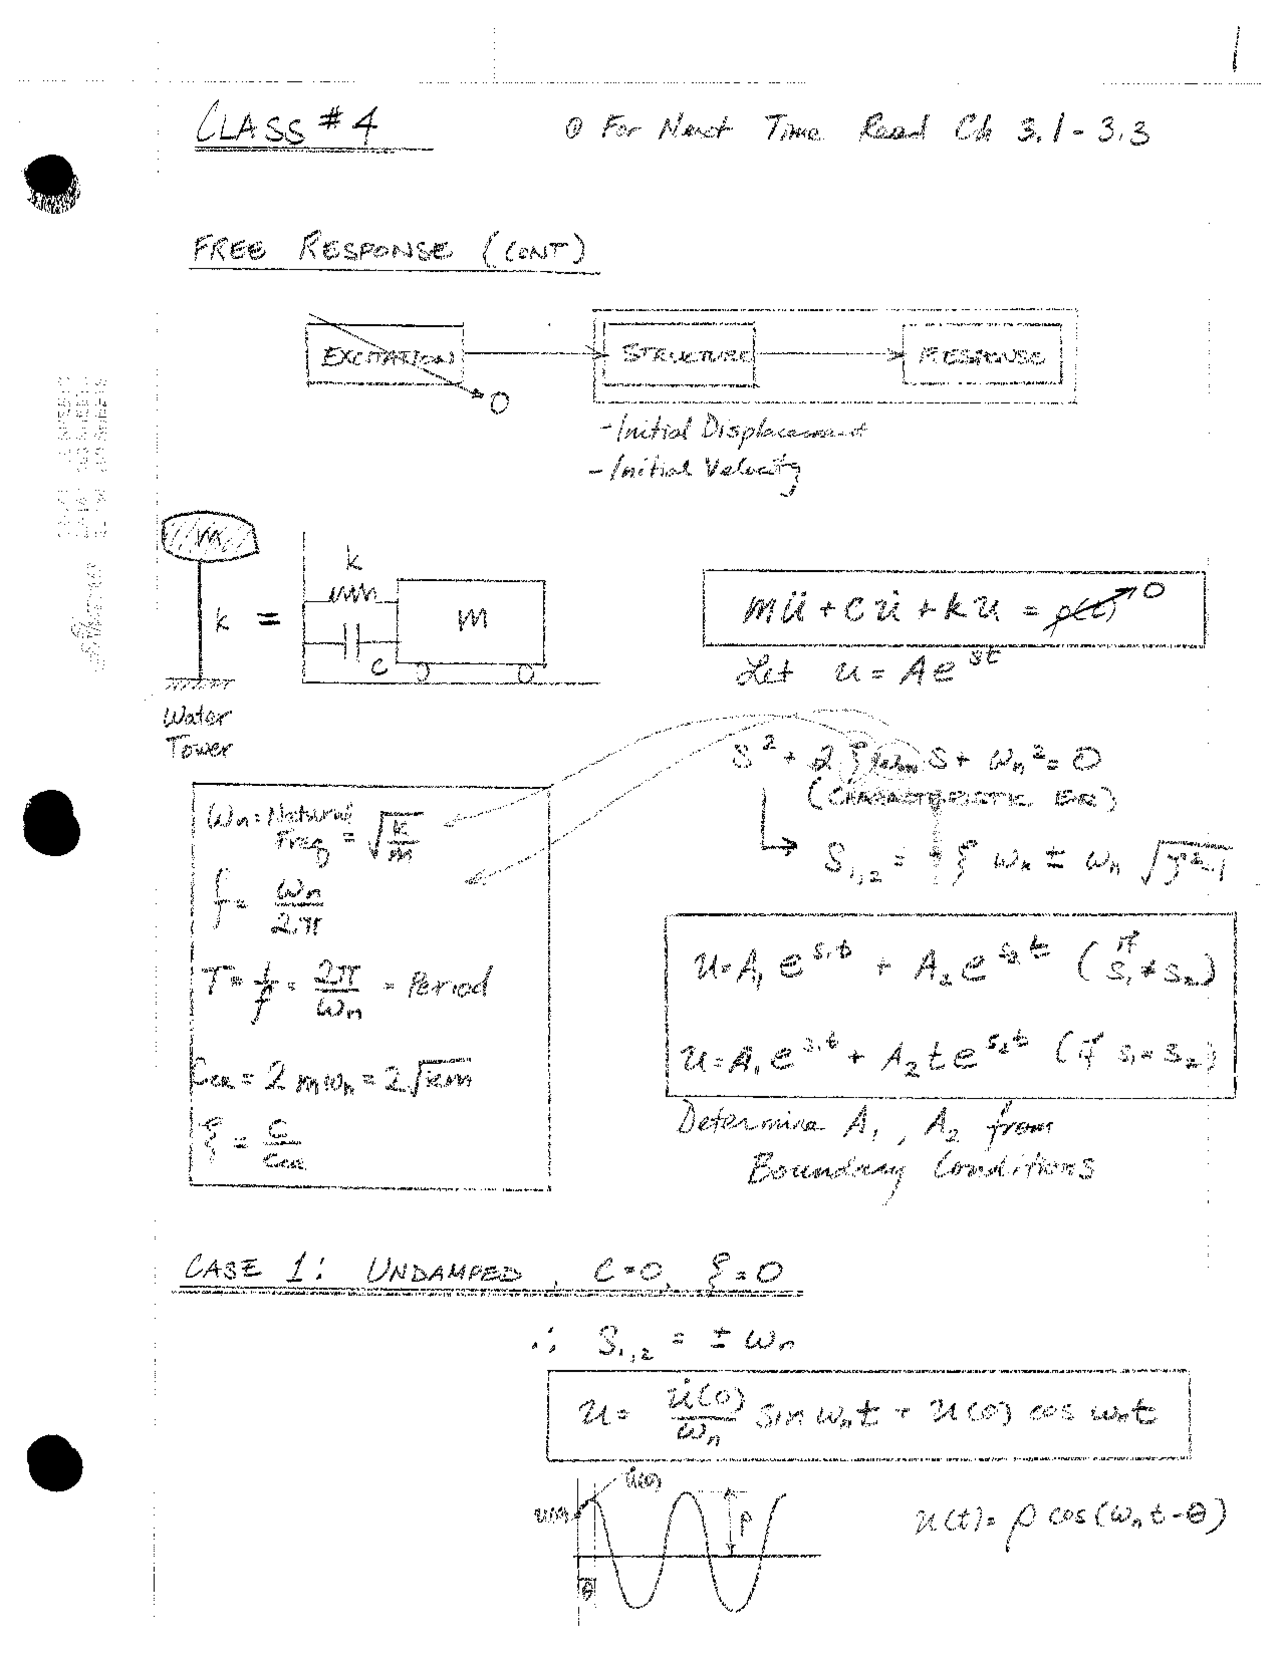 1
CLASS #4
① For Next Time Read Ch 3.1-3.3
FREE RESPONSE (CONT)
EXCITATION
STRUCTURE
RESPONSE
0
-Initial Displacement
-Initial Velocity
m
k
=
k
m
c
Water
Tower
mü + cu̇ + ku = p(t) 0
Let u = Ae^{st}
s² + 2ξωₙs + ωₙ² = 0
(CHARACTERISTIC EQ)
S₁,₂ = -ξωₙ ± ωₙ√(ξ²-1)
ωₙ = Natural
Freq = √(k/m)
f = ωₙ/2π
T = 1/f = 2π/ωₙ = Period
Ccr = 2mωₙ = 2√km
ξ = c/ccr
u = A₁e^{s₁t} + A₂e^{s₂t} (if s₁ ≠ s₂)
u = A₁e^{s₁t} + A₂te^{s₂t} (if s₁ = s₂)
Determine A₁, A₂ from
Boundary Conditions
CASE 1: UNDAMPED, C=0, ξ=0
∴ S₁,₂ = ± ωₙ
u = u̇(0)/ωₙ sin ωₙt + u(0) cos ωₙt
u̇(0)
u(0)
ρ
θ
u(t) = ρ cos(ωₙt-θ)